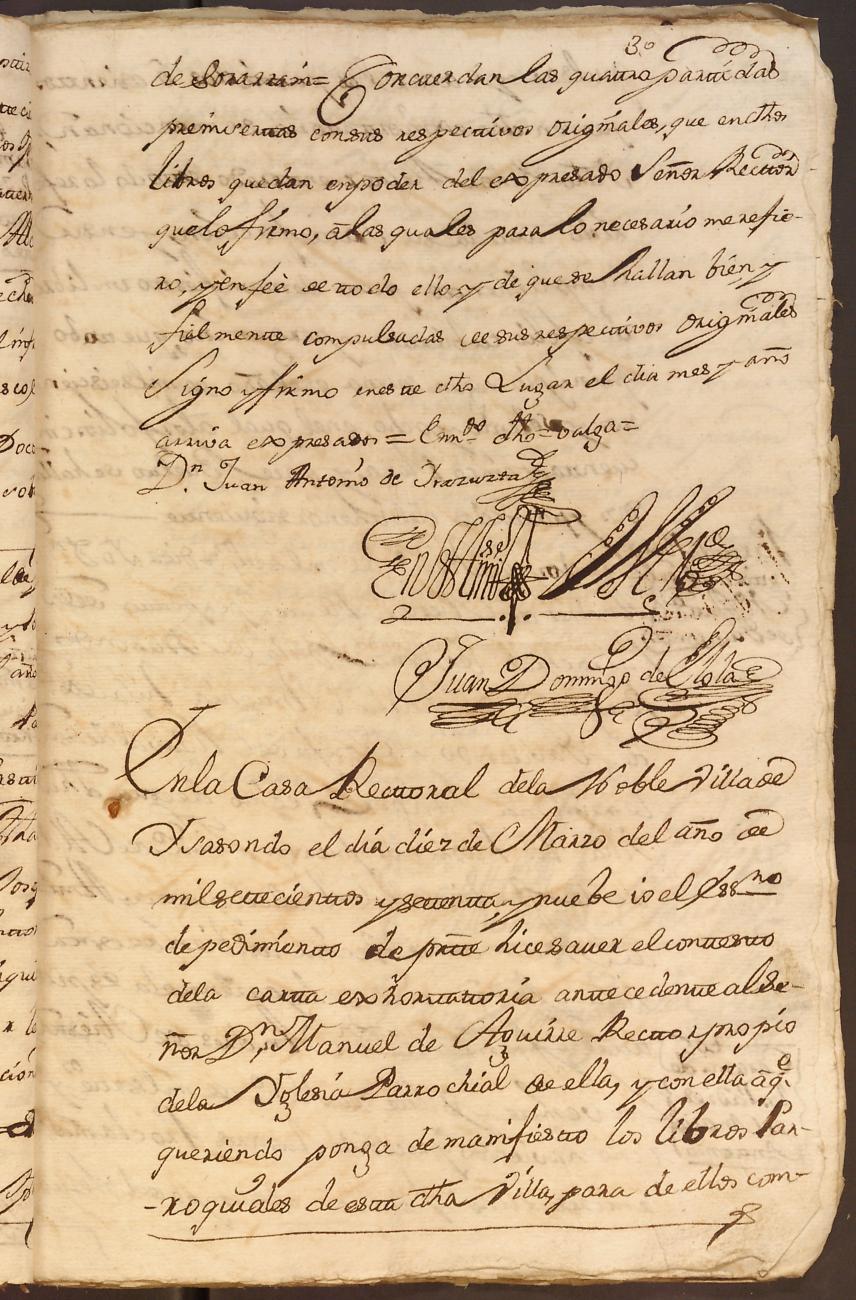 3º
de Concuerdan las quattro parttidas
preinserttas con sus respectivos originales, que en dhos
libros quedan en poder del expresado Señor Recttor
que lo firmo, a las quales para lo necesario me refie-
ro, y en feè de ttodo ello, y de que se hallan bien, y
fielmentte compulsadas de sus respecttivos originales
Signo y firmo en estte dho Lugar el dia mes, y año
arriva expresados = Enndo dho = valga =
Dn Juan Anttonio de Yrazuzta
En ttestimº de Verdad
Juan Domingo de
En la Casa Recttoral de la Noble Villa de
Ysasondo el dia diez de Marzo del año de
mil settecienttos y settentta, y nuebe io el Essno
de pedimientto de partte hice saver el conttestto
de la cartta exhorttattoria anttecedentte al Se-
ñor Dn Manuel de Aguirre Recttor propio
de la Yglesia Parrochial de ella, y con ella a qe
queriendo ponga de manifiestto los libros Par-
-roquiales de estta dha Villa, para de ellos com-